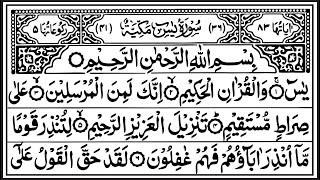 اٰیَاتُهَا ٨٣ (٣٦) سُوْرَةُ یٰسٓ مَكِّیَّةٌ (٤١) رُكُوْعَاتُهَا ٥
بِسْمِ اللّٰهِ الرَّحْمٰنِ الرَّحِیْمِ
یٰسٓ وَالْقُرْاٰنِ الْحَكِیْمِ اِنَّكَ لَمِنَ الْمُرْسَلِیْنَ عَلٰی
صِرَاطٍ مُّسْتَقِیْمٍ تَنْزِیْلَ الْعَزِیْزِ الرَّحِیْمِ لِتُنْذِرَ قَوْمًا
مَّاۤ اُنْذِرَ اٰبَآؤُهُمْ فَهُمْ غٰفِلُوْنَ لَقَدْ حَقَّ الْقَوْلُ عَلٰۤی